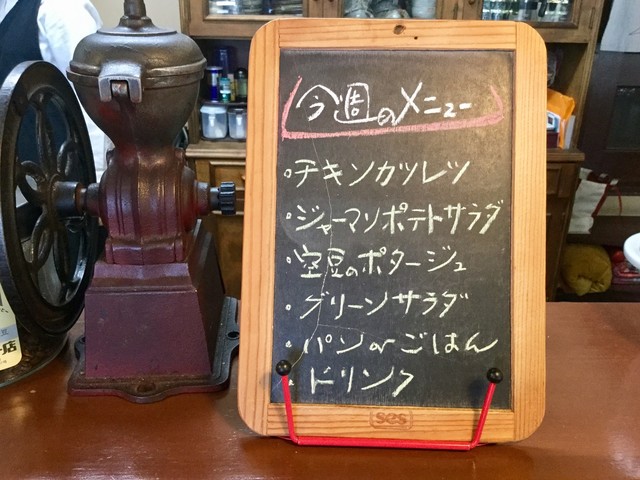 今週のメニュー
・チキンカツレツ
・ジャーマンポテトサラダ
・空豆のポタージュ
・グリーンサラダ
・パンorごはん
・ドリンク
SCS
店